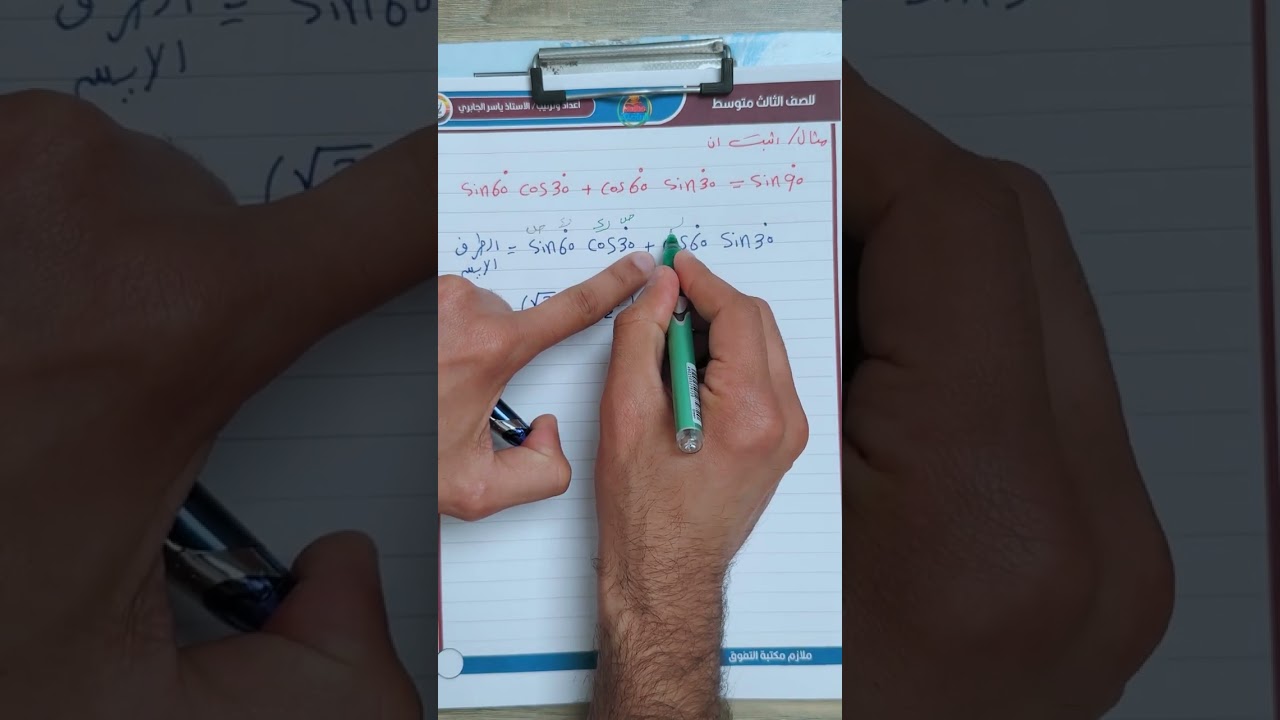 للصف الثالث متوسط
اعداد وترتيب / الاستاذ ياسر الجابري
مثال / اثبت ان
sin60° cos30° + cos60° sin30° = sin90°
الطرف الايسر = sin60° cos30° + cos60° sin30°
ملازم مكتبة التفوق